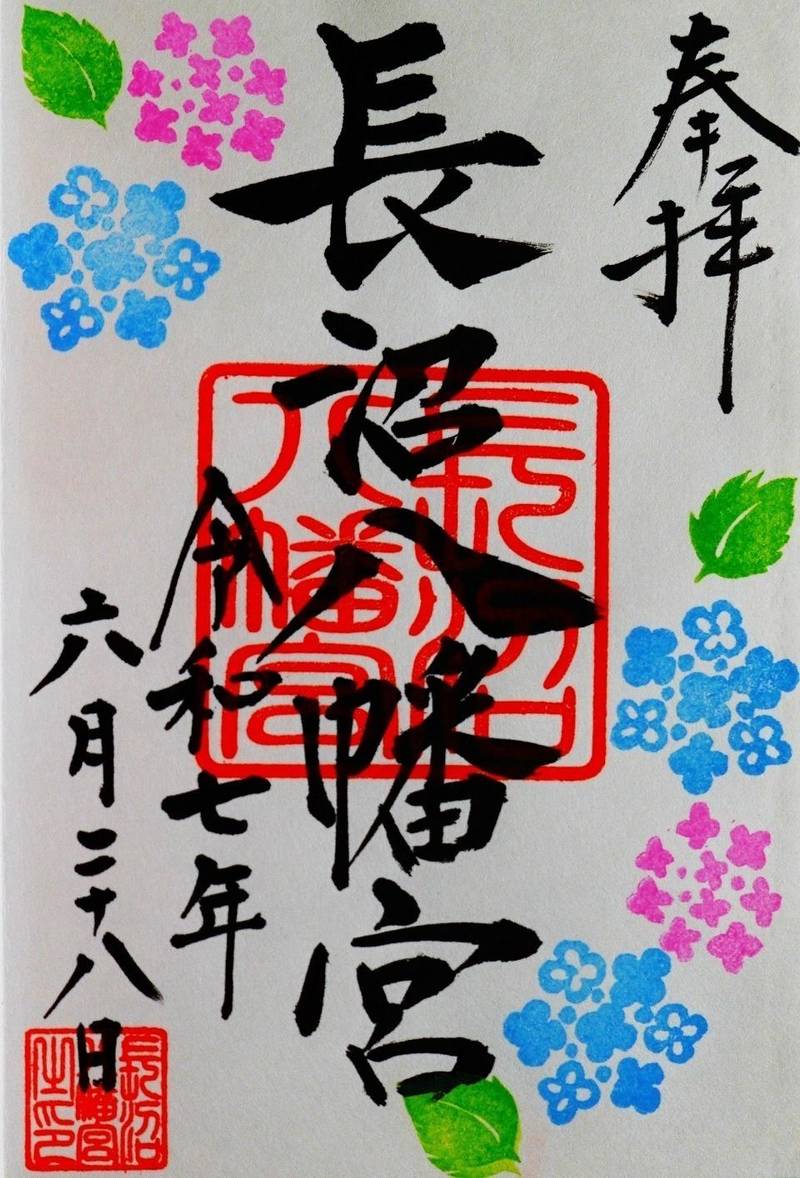 奉拝
長沼八幡宮
令和七年
六月二十八日
長沼八幡宮
長沼八幡宮之印